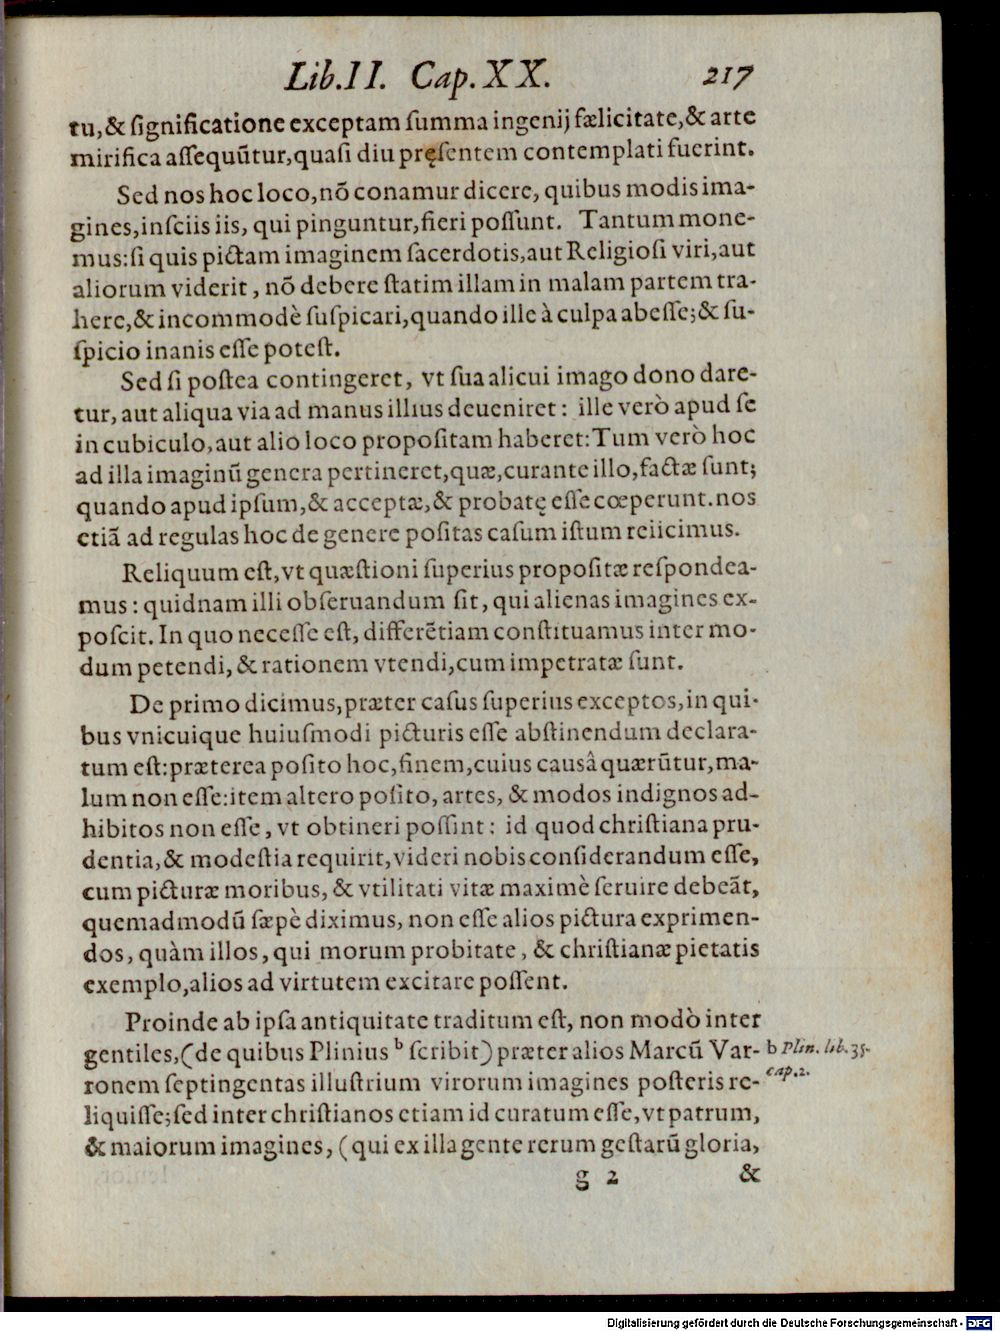 Lib. II. Cap. XX. 217
tu, & ſignificatione exceptam ſumma ingenij fælicitate, & arte
mirifica aſſequũtur, quaſi diu pręſentem contemplati fuerint.
Sed nos hoc loco, nõ conamur dicere, quibus modis ima-
gines, inſciis iis, qui pinguntur, fieri poſſunt. Tantum mone-
mus: ſi quis pictam imaginem ſacerdotis, aut Religioſi viri, aut
aliorum viderit, nõ debere ſtatim illam in malam partem tra-
here, & incommodè ſuſpicari, quando ille à culpa abeſſe; & ſu-
ſpicio inanis eſſe poteſt.
Sed ſi poſtea contingeret, vt ſua alicui imago dono dare-
tur, aut aliqua via ad manus illius deueniret: ille verò apud ſe
in cubiculo, aut alio loco propoſitam haberet: Tum verò hoc
ad illa imaginũ genera pertineret, quæ, curante illo, factæ ſunt;
quando apud ipſum, & acceptæ, & probatę eſſe cœperunt. nos
etiã ad regulas hoc de genere poſitas caſum iſtum reiicimus.
Reliquum eſt, vt quæſtioni ſuperius propoſitæ reſpondea-
mus: quidnam illi obſeruandum ſit, qui alienas imagines ex-
poſcit. In quo neceſſe eſt, differẽtiam conſtituamus inter mo-
dum petendi, & rationem vtendi, cum impetratæ ſunt.
De primo dicimus, præter caſus ſuperius exceptos, in qui-
bus vnicuique huiuſmodi picturis eſſe abſtinendum declara-
tum eſt: præterea poſito hoc, finem, cuius causâ quærũtur, ma-
lum non eſſe: item altero poſito, artes, & modos indignos ad-
hibitos non eſſe, vt obtineri poſſint: id quod chriſtiana pru-
dentia, & modeſtia requirit, videri nobis conſiderandum eſſe,
cum picturæ moribus, & vtilitati vitæ maximè ſeruire debeãt,
quemadmodũ ſæpè diximus, non eſſe alios pictura exprimen-
dos, quàm illos, qui morum probitate, & chriſtianæ pietatis
exemplo, alios ad virtutem excitare poſſent.
Proinde ab ipſa antiquitate traditum eſt, non modò inter
gentiles, (de quibus Plinius b ſcribit) præter alios Marcũ Var-
b Plin. lib. 35.
cap. 2.
ronem ſeptingentas illuſtrium virorum imagines poſteris re-
liquiſſe; ſed inter chriſtianos etiam id curatum eſſe, vt patrum,
& maiorum imagines, (qui ex illa gente rerum geſtarũ gloria,
g 2 &
Digitalisierung gefördert durch die Deutsche Forschungsgemeinschaft - DFG